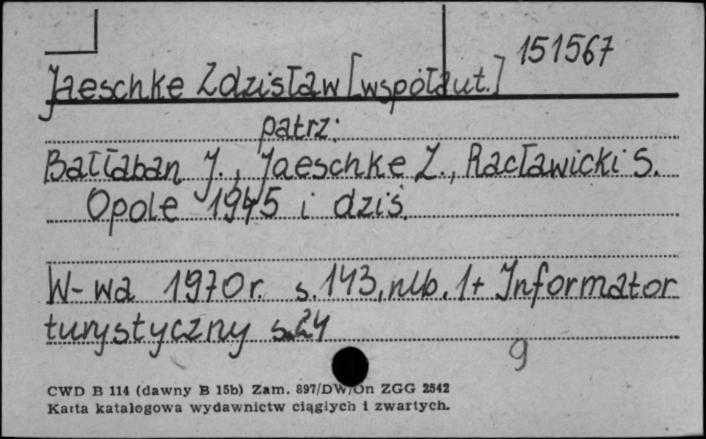 151567
Jaeschke Zdzisław [współaut.]
patrz:
Bałłaban J., Jaeschke Z., Racławicki S.
Opole 1945 i dziś.
W-wa 1970r. s.143, nlb. 1+ Informator
turystyczny s.24
9
CWD B 114 (dawny B 15b) Zam. 897/DW/On ZGG 2542
Karta katalogowa wydawnictw ciągłych i zwartych.